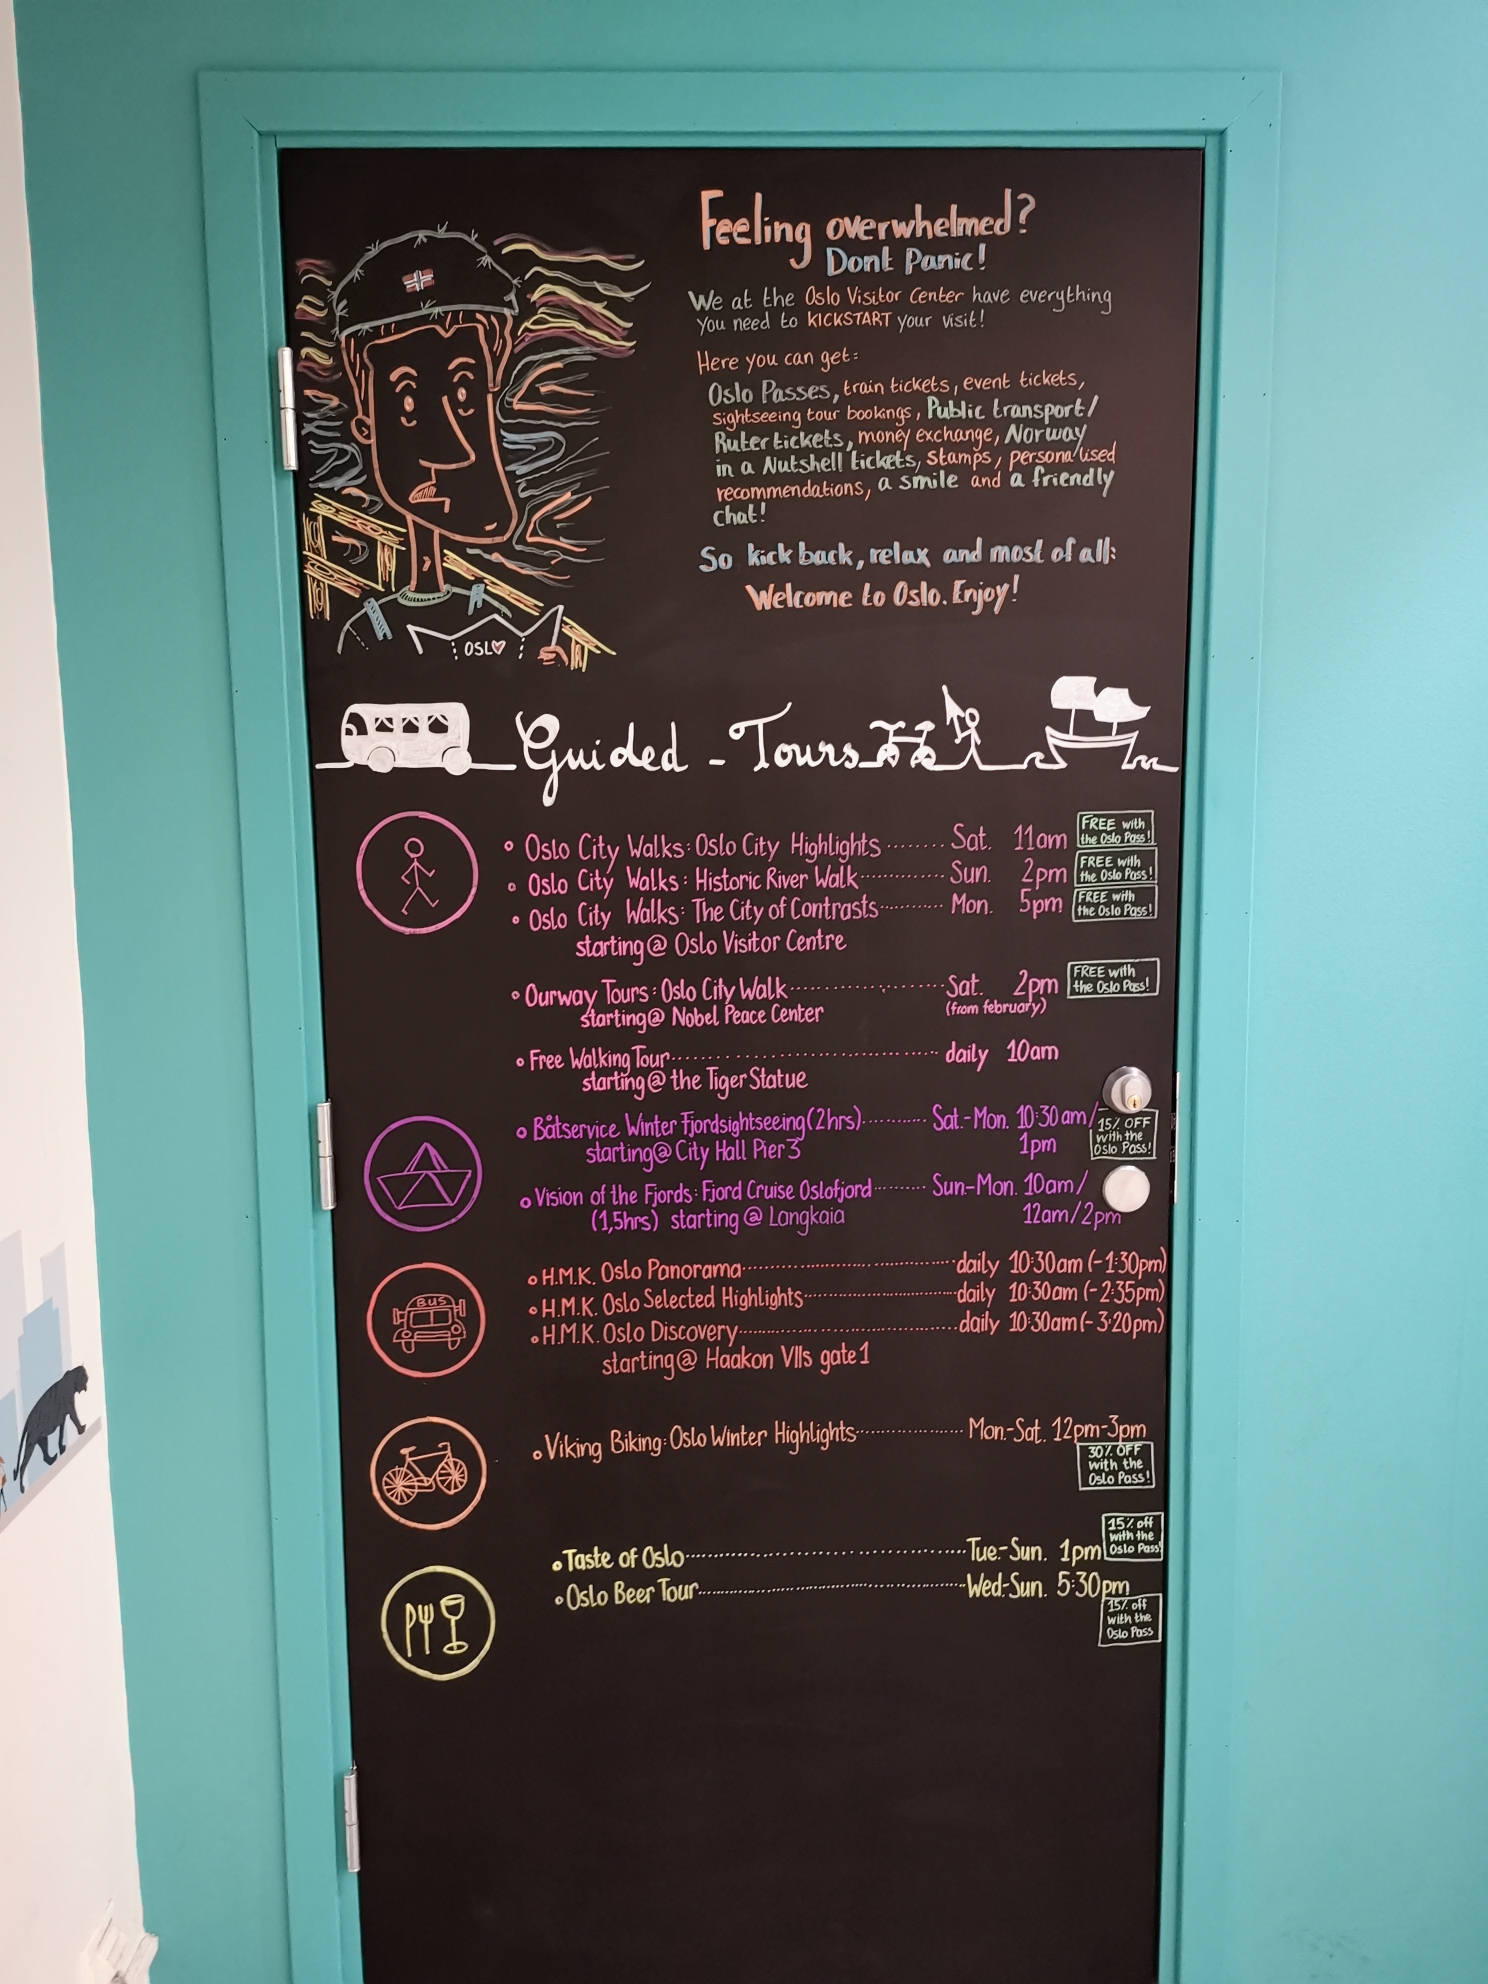 Feeling overwhelmed?
Dont Panic!
We at the Oslo Visitor Center have everything
you need to KICKSTART your visit!
Here you can get:
Oslo Passes, train tickets, event tickets,
sightseeing tour bookings, Public transport/
Ruter tickets, money exchange, Norway
in a Nutshell tickets, stamps, personalised
recommendations, a smile and a friendly
chat!
So kick back, relax and most of all:
Welcome to Oslo. Enjoy!
OSL♡
Guided - Tours
Oslo City Walks: Oslo City Highlights ........ Sat. 11am FREE with
the Oslo Pass!
Oslo City Walks: Historic River Walk ............ Sun. 2pm FREE with
the Oslo Pass!
Oslo City Walks: The City of Contrasts ......... Mon. 5pm FREE with
the Oslo Pass!
starting @ Oslo Visitor Centre
Ourway Tours: Oslo City Walk ............ Sat. 2pm FREE with
the Oslo Pass!
starting @ Nobel Peace Center (from february)
Free Walking Tour ............ daily 10am
starting @ the Tiger Statue
Båtservice Winter Fjordsightseeing (2hrs) ......... Sat.-Mon. 10:30am/
starting @ City Hall Pier 3 1pm
15% OFF
with the
Oslo Pass!
Vision of the Fjords: Fjord Cruise Oslofjord ........ Sun-Mon. 10am/
(1,5hrs) starting @ Langkaia 12am/2pm
BUS
H.M.K. Oslo Panorama ............ daily 10:30am (-1:30pm)
H.M.K. Oslo Selected Highlights ............ daily 10:30am (-2:35pm)
H.M.K. Oslo Discovery ............ daily 10:30am (-3:20pm)
starting @ Haakon VIIs gate 1
Viking Biking: Oslo Winter Highlights ............ Mon.-Sat. 12pm-3pm
30% OFF
with the
Oslo Pass!
Taste of Oslo ............ Tue.-Sun. 1pm
15% off
with the
Oslo Pass!
Oslo Beer Tour ............ Wed.-Sun. 5:30pm
15% off
with the
Oslo Pass